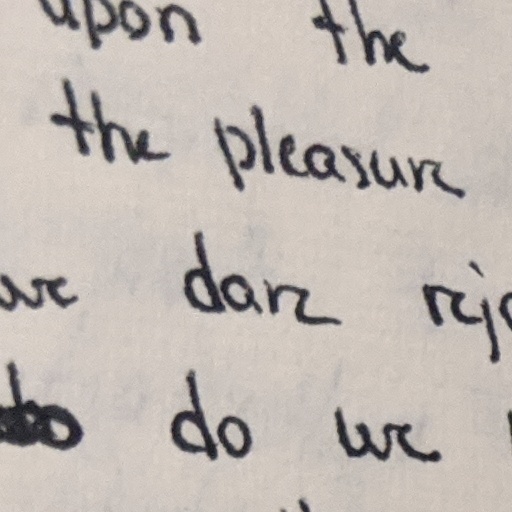 upon the
the pleasure
we dare rej
do we